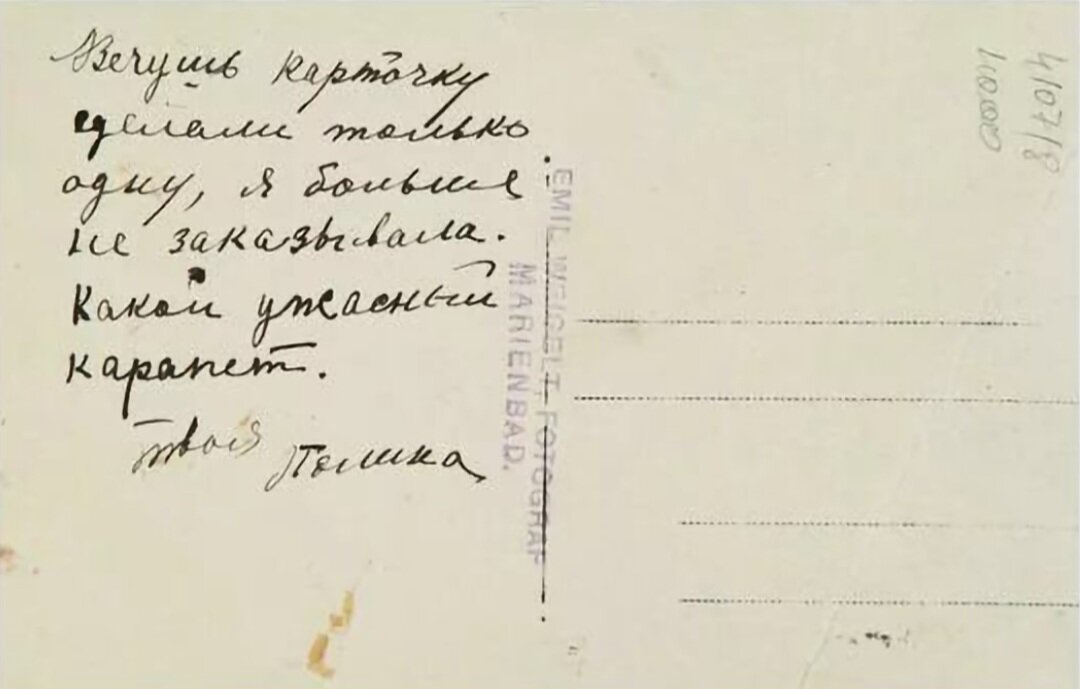 Вечушь карточку
сделали только
одну, я больше
не заказывала.
Какой ужасный
карапет.
твоя Полика
EMIL WEIGELT, FOTOGRAF
MARIENBAD.
41078